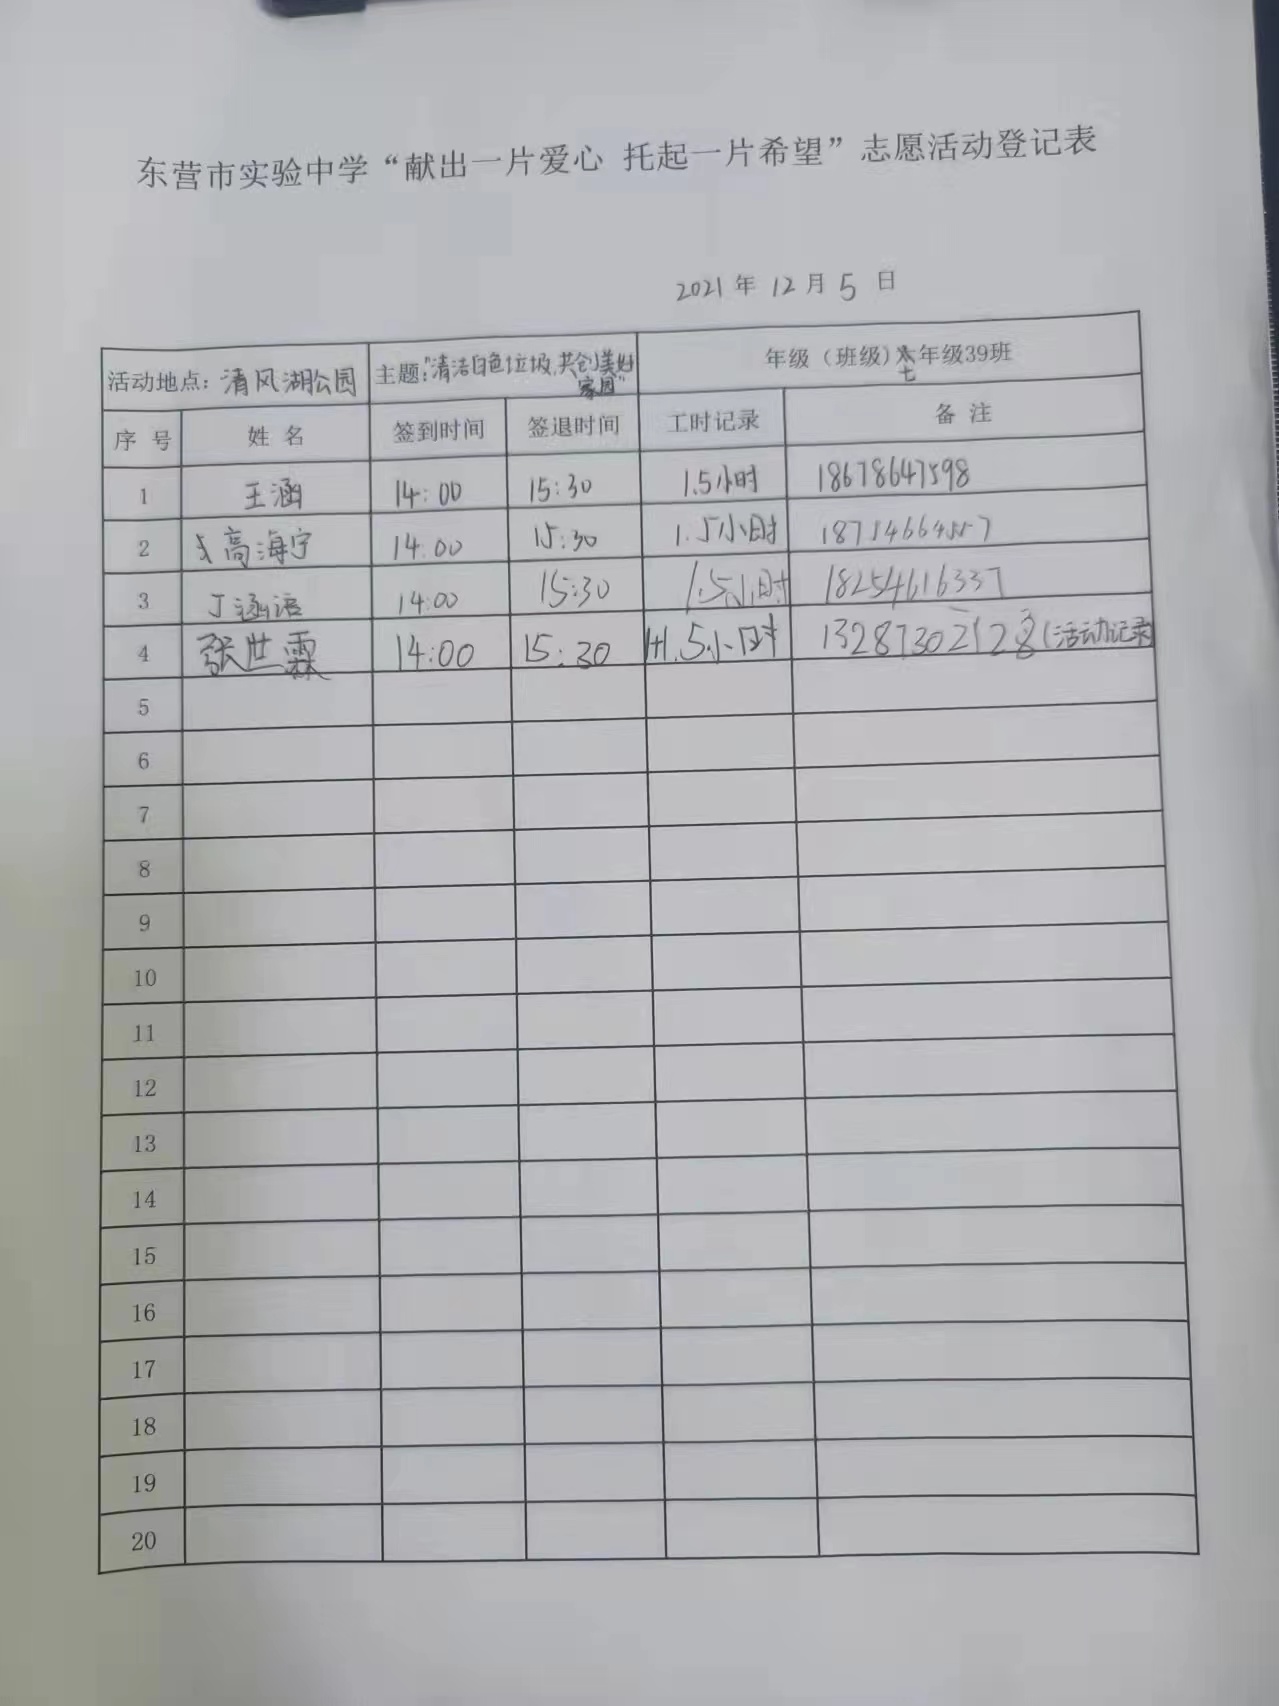 东营市实验中学“献出一片爱心 托起一片希望”志愿活动登记表
2021 年 12 月 5 日
活动地点：清风湖公园 主题：“清洁白色垃圾，共创美好家园” 年级（班级）七年级39班
序 号 姓 名 签到时间 签退时间 工时记录 备 注
1 王涵 14:00 15:30 1.5小时 18678647598
2 高海宁 14:00 15:30 1.5小时
3 丁涵语 14:00 15:30 1.5小时 18254616337
4 张世霖 14:00 15:30 1.5小时 (活动记录
5
6
7
8
9
10
11
12
13
14
15
16
17
18
19
20